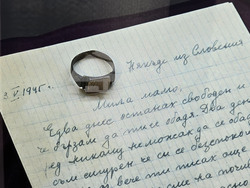 Някъде из Словения
3.V.1945г.
Мила мамо,
Едва днес останах свободен и
бързам да ти се обадя. Два
ред никому неможах да се обадя
съм сигурен че си се безспокоила
вече ти писах още